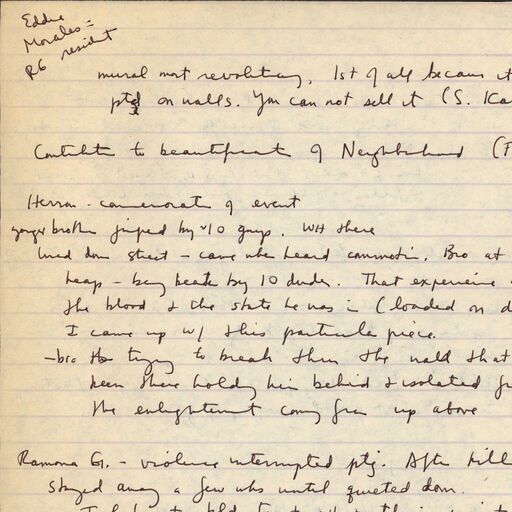 Eddie
Morales =
RG resident
mural most revolutionary, 1st of all because it
ptd on walls. You can not sell it (S. Ka
Contribute to beautification of Neighborhood (F
Herron - commemorate of event
younger brother jumped by ~10 guys. WH there
lived down street - came when heard commotion. Bro at
heap - being beaten by 10 dudes. That experience
the blood & the state he was in (loaded on d
I came up w/ this particular piece.
- bro trying to break thru the wall that
been there holding him behind & isolated fr
the enlightenment coming from up above
Ramona G. - violence interrupted ptg. After kill
stayed away a few wks until quieted down.